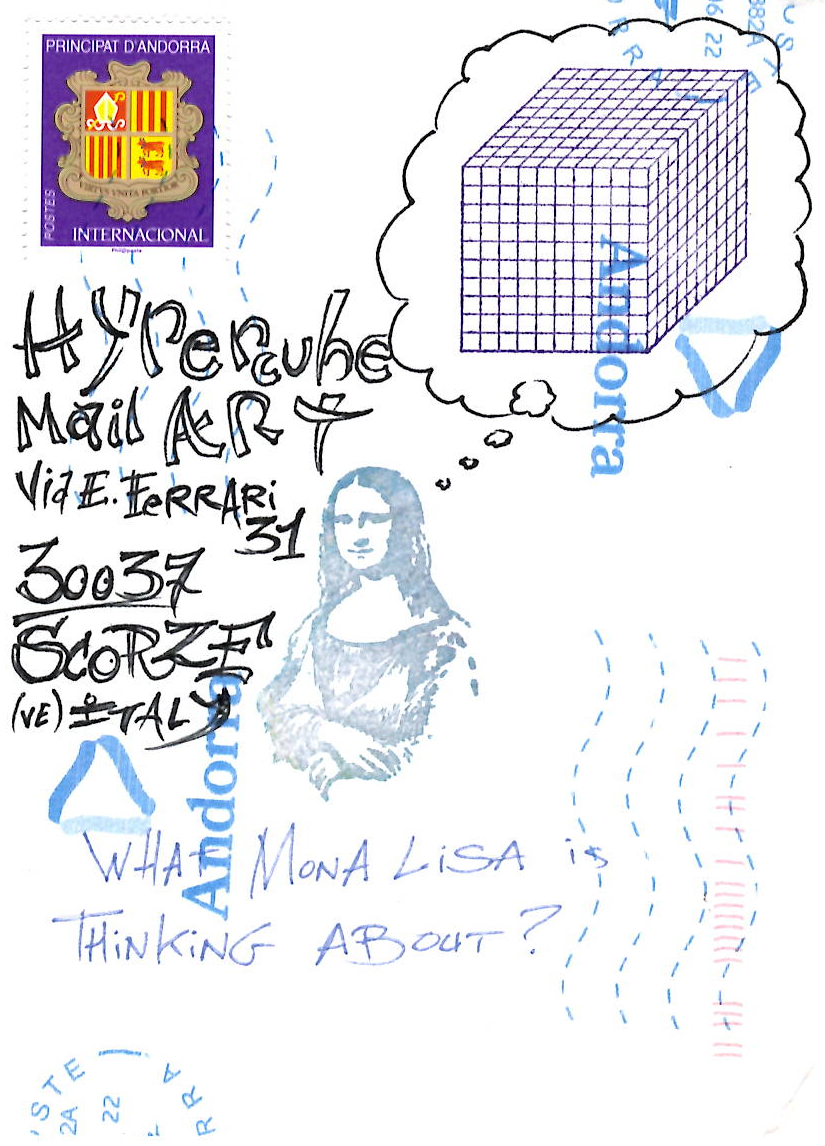 PRINCIPAT D'ANDORRA
VIRTVS VNITA FORTIOR
POSTES
INTERNACIONAL
Phil@poste
06 22
382A
Andorra
Hypercube
Mail ART
Via E. FERRARi
31
30037
SCORZE'
(VE) iTALY
Andorra
WHAT MONA LiSA is
THiNKiNG ABOUT?
22
2A